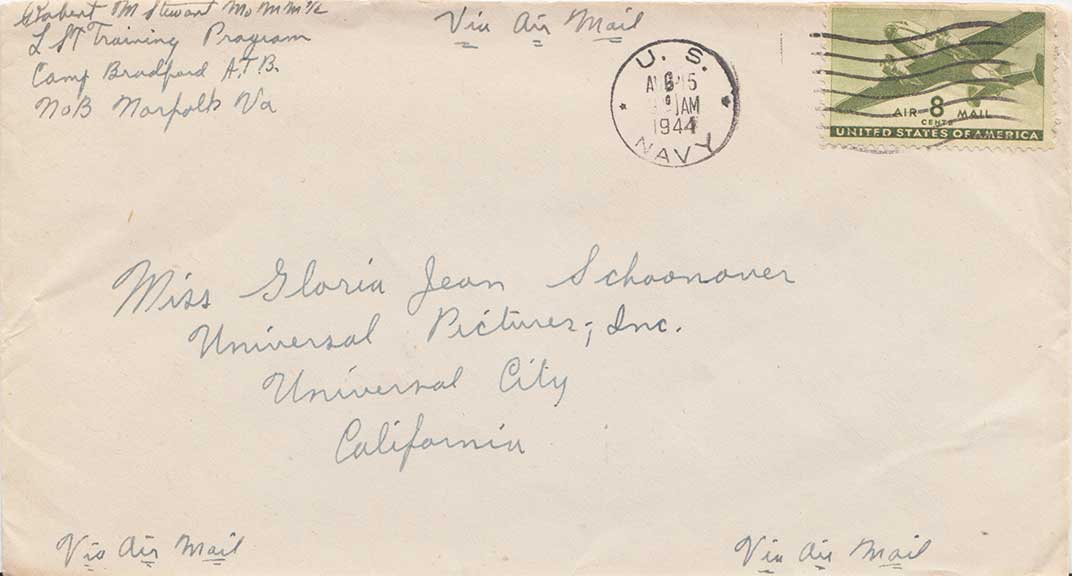 Robert M Stewart MoMM 1/c
LST Training Program
Camp Bradford A.T.B.
NOB Norfolk Va
Via Air Mail
U. S. NAVY
AUG 15
AM
1944
AIR 8 MAIL
CENTS
UNITED STATES OF AMERICA
Miss Gloria Jean Schoonover
Universal Pictures, Inc.
Universal City
California
Via Air Mail
Via Air Mail